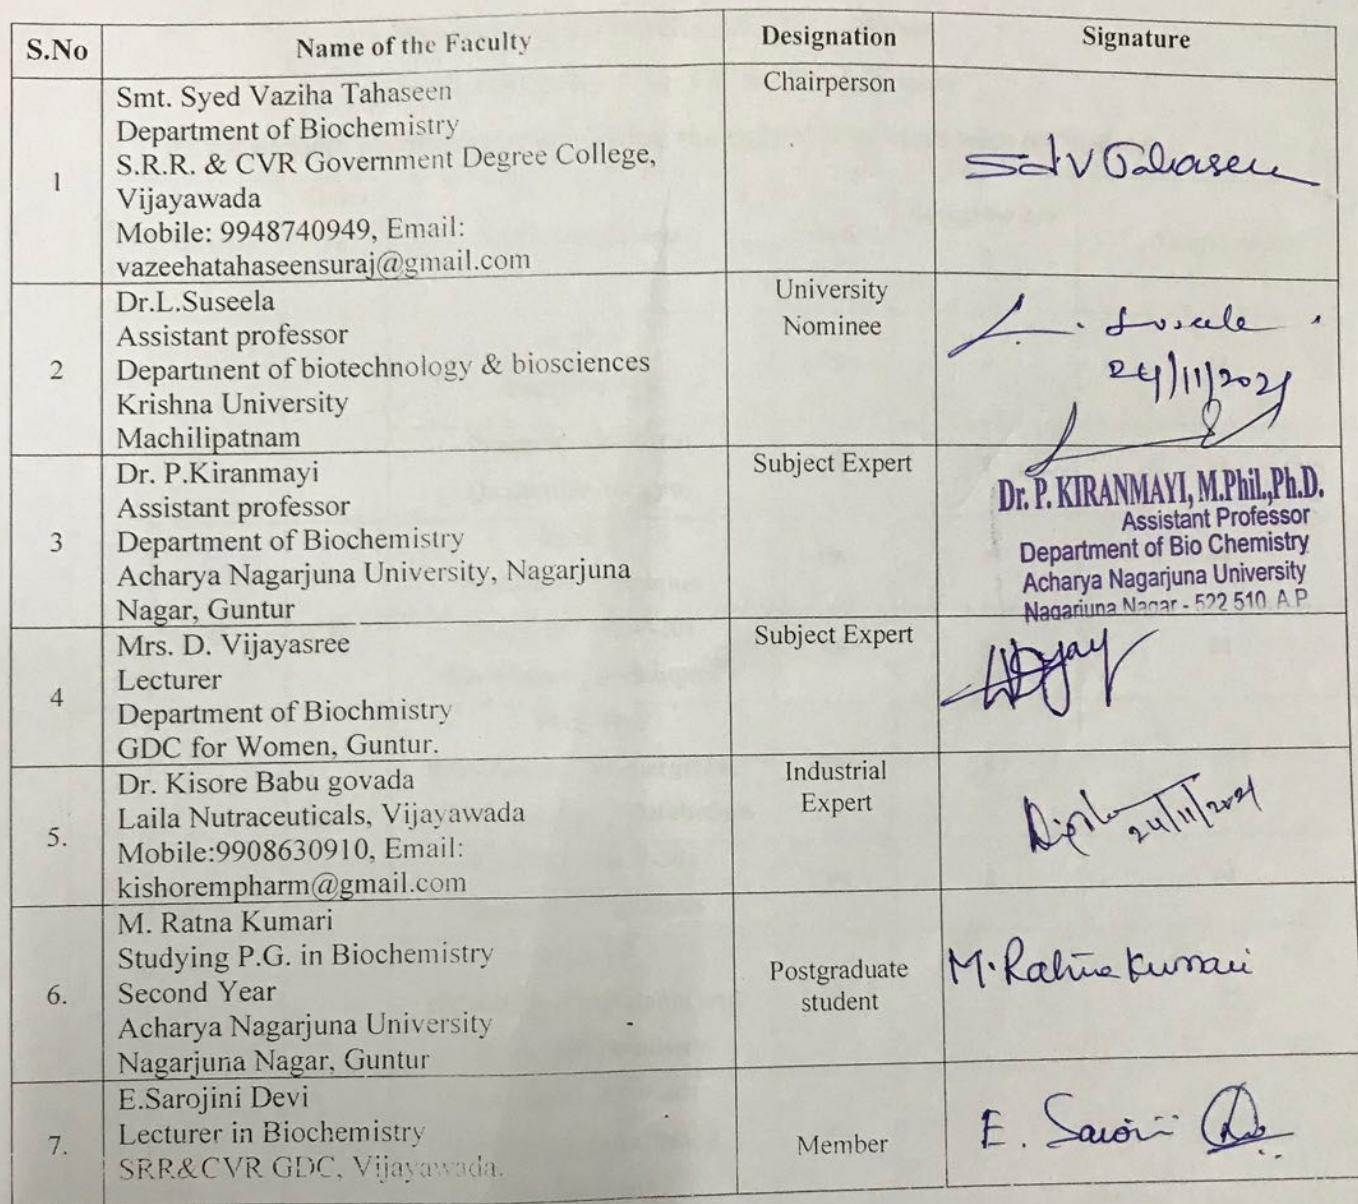 S.No Name of the Faculty Designation Signature
1
Smt. Syed Vaziha Tahaseen
Department of Biochemistry
S.R.R. & CVR Government Degree College,
Vijayawada
Mobile: 9948740949, Email:
vazeehatahaseensuraj@gmail.com
Chairperson
2
Dr.L.Suseela
Assistant professor
Department of biotechnology & biosciences
Krishna University
Machilipatnam
University
Nominee
24/11/2021
3
Dr. P.Kiranmayi
Assistant professor
Department of Biochemistry
Acharya Nagarjuna University, Nagarjuna
Nagar, Guntur
Subject Expert
Dr. P. KIRANMAYI, M.Phil.,Ph.D.
Assistant Professor
Department of Bio Chemistry
Acharya Nagarjuna University
Nagarjuna Nagar - 522 510. A.P.
4
Mrs. D. Vijayasree
Lecturer
Department of Biochmistry
GDC for Women, Guntur.
Subject Expert
5.
Dr. Kisore Babu govada
Laila Nutraceuticals, Vijayawada
Mobile:9908630910, Email:
kishorempharm@gmail.com
Industrial
Expert
24/11/2021
6.
M. Ratna Kumari
Studying P.G. in Biochemistry
Second Year
Acharya Nagarjuna University
Nagarjuna Nagar, Guntur
Postgraduate
student
M. Ratna Kumari
7.
E.Sarojini Devi
Lecturer in Biochemistry
SRR&CVR GDC, Vijayawada.
Member